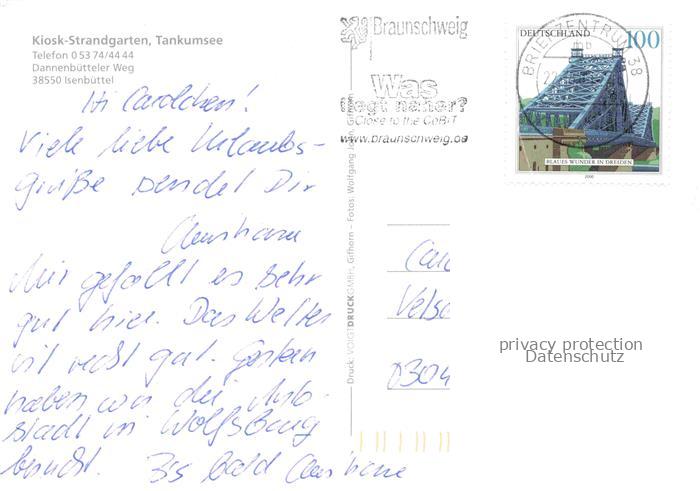 Kiosk-Strandgarten, Tankumsee
Telefon 0 53 74/44 44
Dannenbütteler Weg
38550 Isenbüttel
Hi Carolchen!
Viele liebe Urlaubs-
grüße sendet Dir
Christiane
Mir gefällt es sehr
gut hier. Das Wetter
ist recht gut. Gestern
haben wir die Auto-
stadt in Wolfsburg
besucht. Bis bald Christiane
Druck: VOIGTDRUCK GMBH, Gifhorn – Fotos: Wolfgang Gifhorn
Braunschweig
Was
liegt näher?
Close to the CeBIT
www.braunschweig.de
BRIEFZENTRUM 38
mb
DEUTSCHLAND 100
BLAUES WUNDER IN DRESDEN
2000
Car
Velsc
0304
privacy protection
Datenschutz